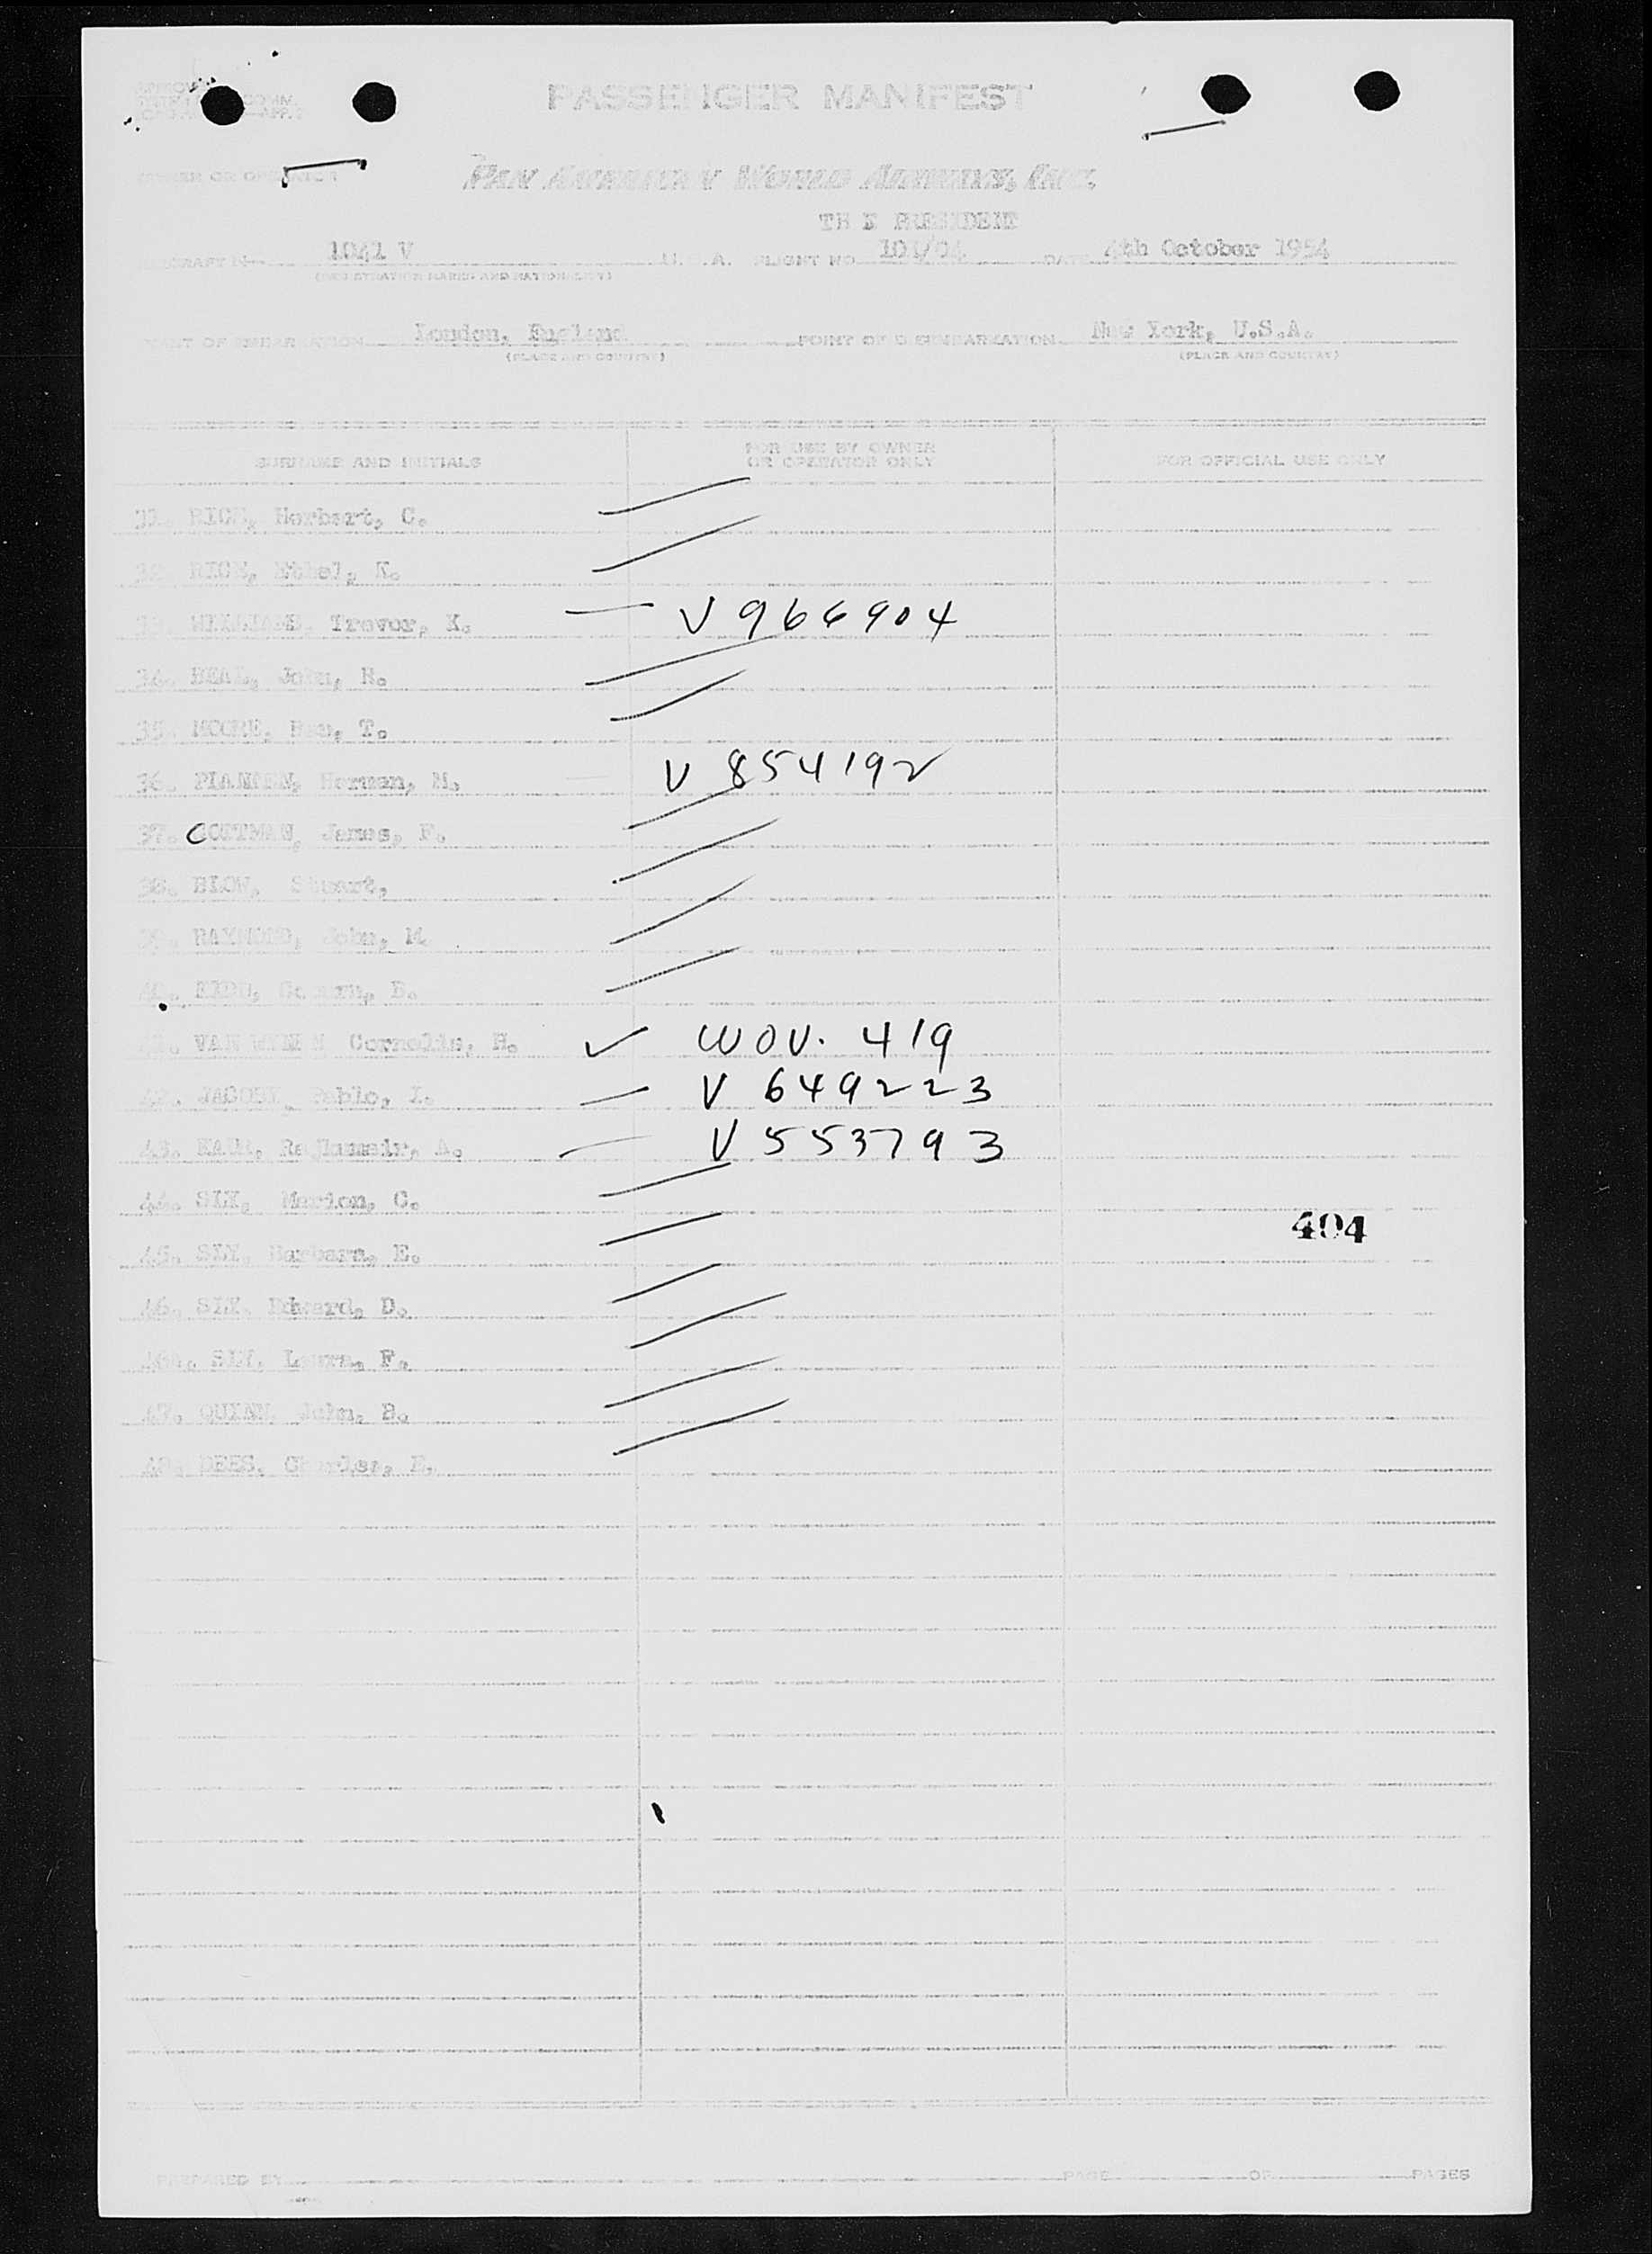 PASSENGER MANIFEST
OWNER OR OPERATOR
PAN AMERICAN WORLD AIRWAYS, INC.
THE PRESIDENT
AIRCRAFT No. 1041 V U.S.A. FLIGHT NO. 101/04 DATE 4th October 1954
(REGISTRATION MARKS AND NATIONALITY)
POINT OF EMBARKATION London, England POINT OF DISEMBARKATION New York, U.S.A.
(PLACE AND COUNTRY) (PLACE AND COUNTRY)
SURNAME AND INITIALS FOR USE BY OWNER OR OPERATOR ONLY FOR OFFICIAL USE ONLY
31. RICE, Herbert, C.
32. RICE, Ethel, K.
33. WILLIAMS, Trevor, K. V 966904
34. BEAL, John, R.
35. MOORE, T.
36. Herman, M. V 854192
37. COTTMAN, James, F.
38. BLOW, Stuart,
39. RAYMOND, John, M.
40. KIDD, B.
41. VAN Cornelis, H. WOV. 419
42. JACOBY, Pablo, I. V 649223
43. A. V 553793
44. SLY, Marion, C.
404
45. SLY, Barbara, E.
46. SLY, Edward, D.
SLY, Laura, F.
47. QUINN, John, B.
48. DEES, Charles, E.
PREPARED BY PAGE OF PAGES